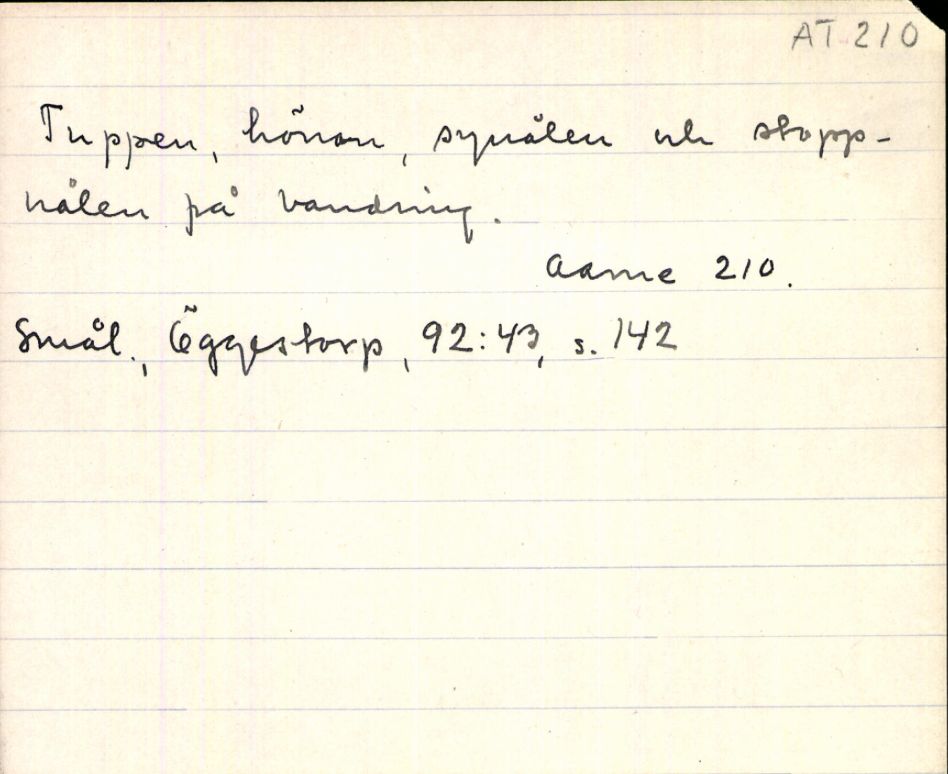 AT 210
Tuppen, hönan, synålen och stopp-
nålen på vandring.
Aarne 210.
Smål., Öggestorp, 92:43, s. 142